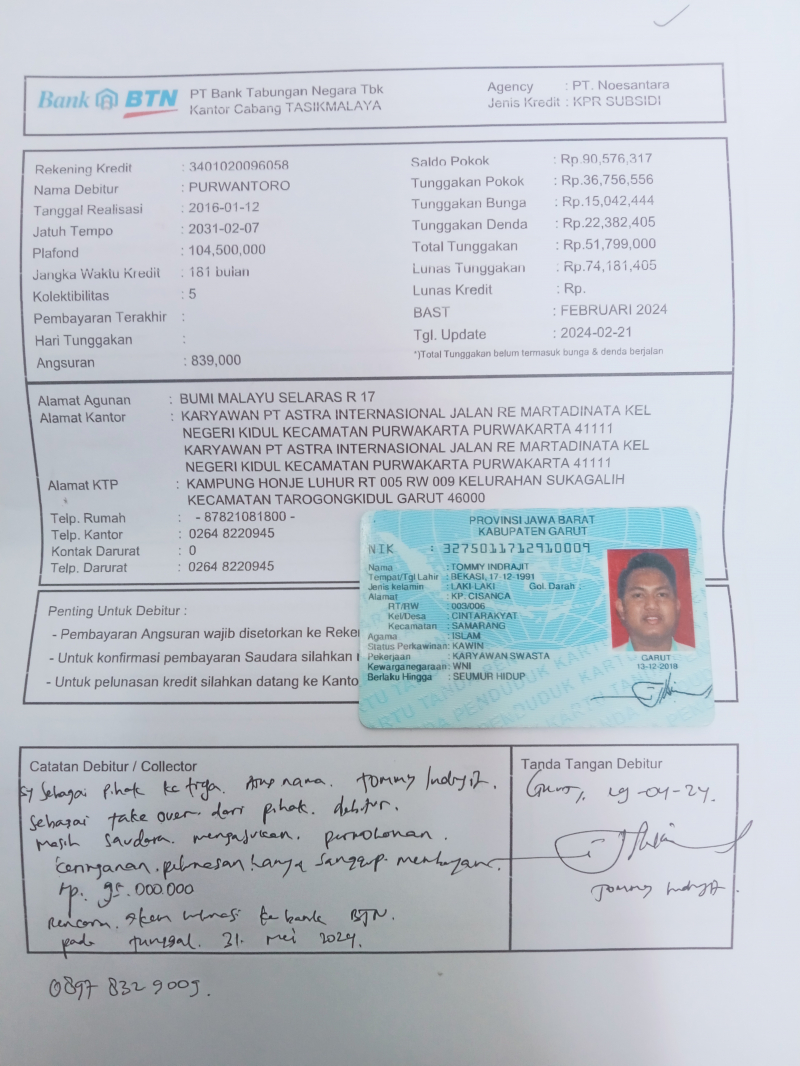 Bank BTN
PT Bank Tabungan Negara Tbk
Kantor Cabang TASIKMALAYA
Agency : PT. Noesantara
Jenis Kredit : KPR SUBSIDI
Rekening Kredit : 3401020096058
Nama Debitur : PURWANTORO
Tanggal Realisasi : 2016-01-12
Jatuh Tempo : 2031-02-07
Plafond : 104,500,000
Jangka Waktu Kredit : 181 bulan
Kolektibilitas : 5
Pembayaran Terakhir :
Hari Tunggakan :
Angsuran : 839,000
Saldo Pokok : Rp.90,576,317
Tunggakan Pokok : Rp.36,756,556
Tunggakan Bunga : Rp.15,042,444
Tunggakan Denda : Rp.22,382,405
Total Tunggakan : Rp.51,799,000
Lunas Tunggakan : Rp.74,181,405
Lunas Kredit : Rp.
BAST : FEBRUARI 2024
Tgl. Update : 2024-02-21
*)Total Tunggakan belum termasuk bunga & denda berjalan
Alamat Agunan : BUMI MALAYU SELARAS R 17
Alamat Kantor : KARYAWAN PT ASTRA INTERNASIONAL JALAN RE MARTADINATA KEL
NEGERI KIDUL KECAMATAN PURWAKARTA PURWAKARTA 41111
KARYAWAN PT ASTRA INTERNASIONAL JALAN RE MARTADINATA KEL
NEGERI KIDUL KECAMATAN PURWAKARTA PURWAKARTA 41111
Alamat KTP : KAMPUNG HONJE LUHUR RT 005 RW 009 KELURAHAN SUKAGALIH
KECAMATAN TAROGONGKIDUL GARUT 46000
Telp. Rumah : - 87821081800 -
Telp. Kantor : 0264 8220945
Kontak Darurat : 0
Telp. Darurat : 0264 8220945
PROVINSI JAWA BARAT
KABUPATEN GARUT
NIK : 3275011712910009
Nama : TOMMY INDRAJIT
Tempat/Tgl Lahir : BEKASI, 17-12-1991
Jenis kelamin : LAKI-LAKI Gol. Darah :
Alamat : KP. CISANCA
RT/RW : 003/006
Kel/Desa : CINTARAKYAT
Kecamatan : SAMARANG
Agama : ISLAM
Status Perkawinan: KAWIN
Pekerjaan : KARYAWAN SWASTA
Kewarganegaraan: WNI
Berlaku Hingga : SEUMUR HIDUP
GARUT
13-12-2018
Penting Untuk Debitur :
- Pembayaran Angsuran wajib disetorkan ke Reke
- Untuk konfirmasi pembayaran Saudara silahkan
- Untuk pelunasan kredit silahkan datang ke Kanto
Catatan Debitur / Collector
sy sebagai pihak ketiga. nama. Tommy Indrajit.
sebagai take over dari pihak debitur.
masih saudara. mengajukan. permohonan.
keringanan. pelunasan hanya sanggup membayar.
Rp. 95.000.000
Rencana. akan lunasi ke bank BTN.
pada tanggal. 31. mei 2024.
Tanda Tangan Debitur
Garut, 29-04-24.
Tommy Indrajit.
0897 832 9009.